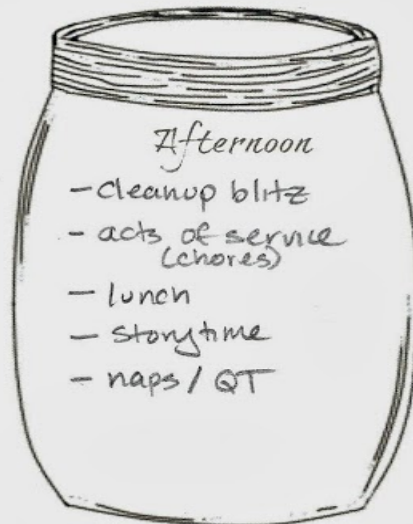 Afternoon
- cleanup blitz
- acts of service
(chores)
- lunch
- storytime
- naps / QT